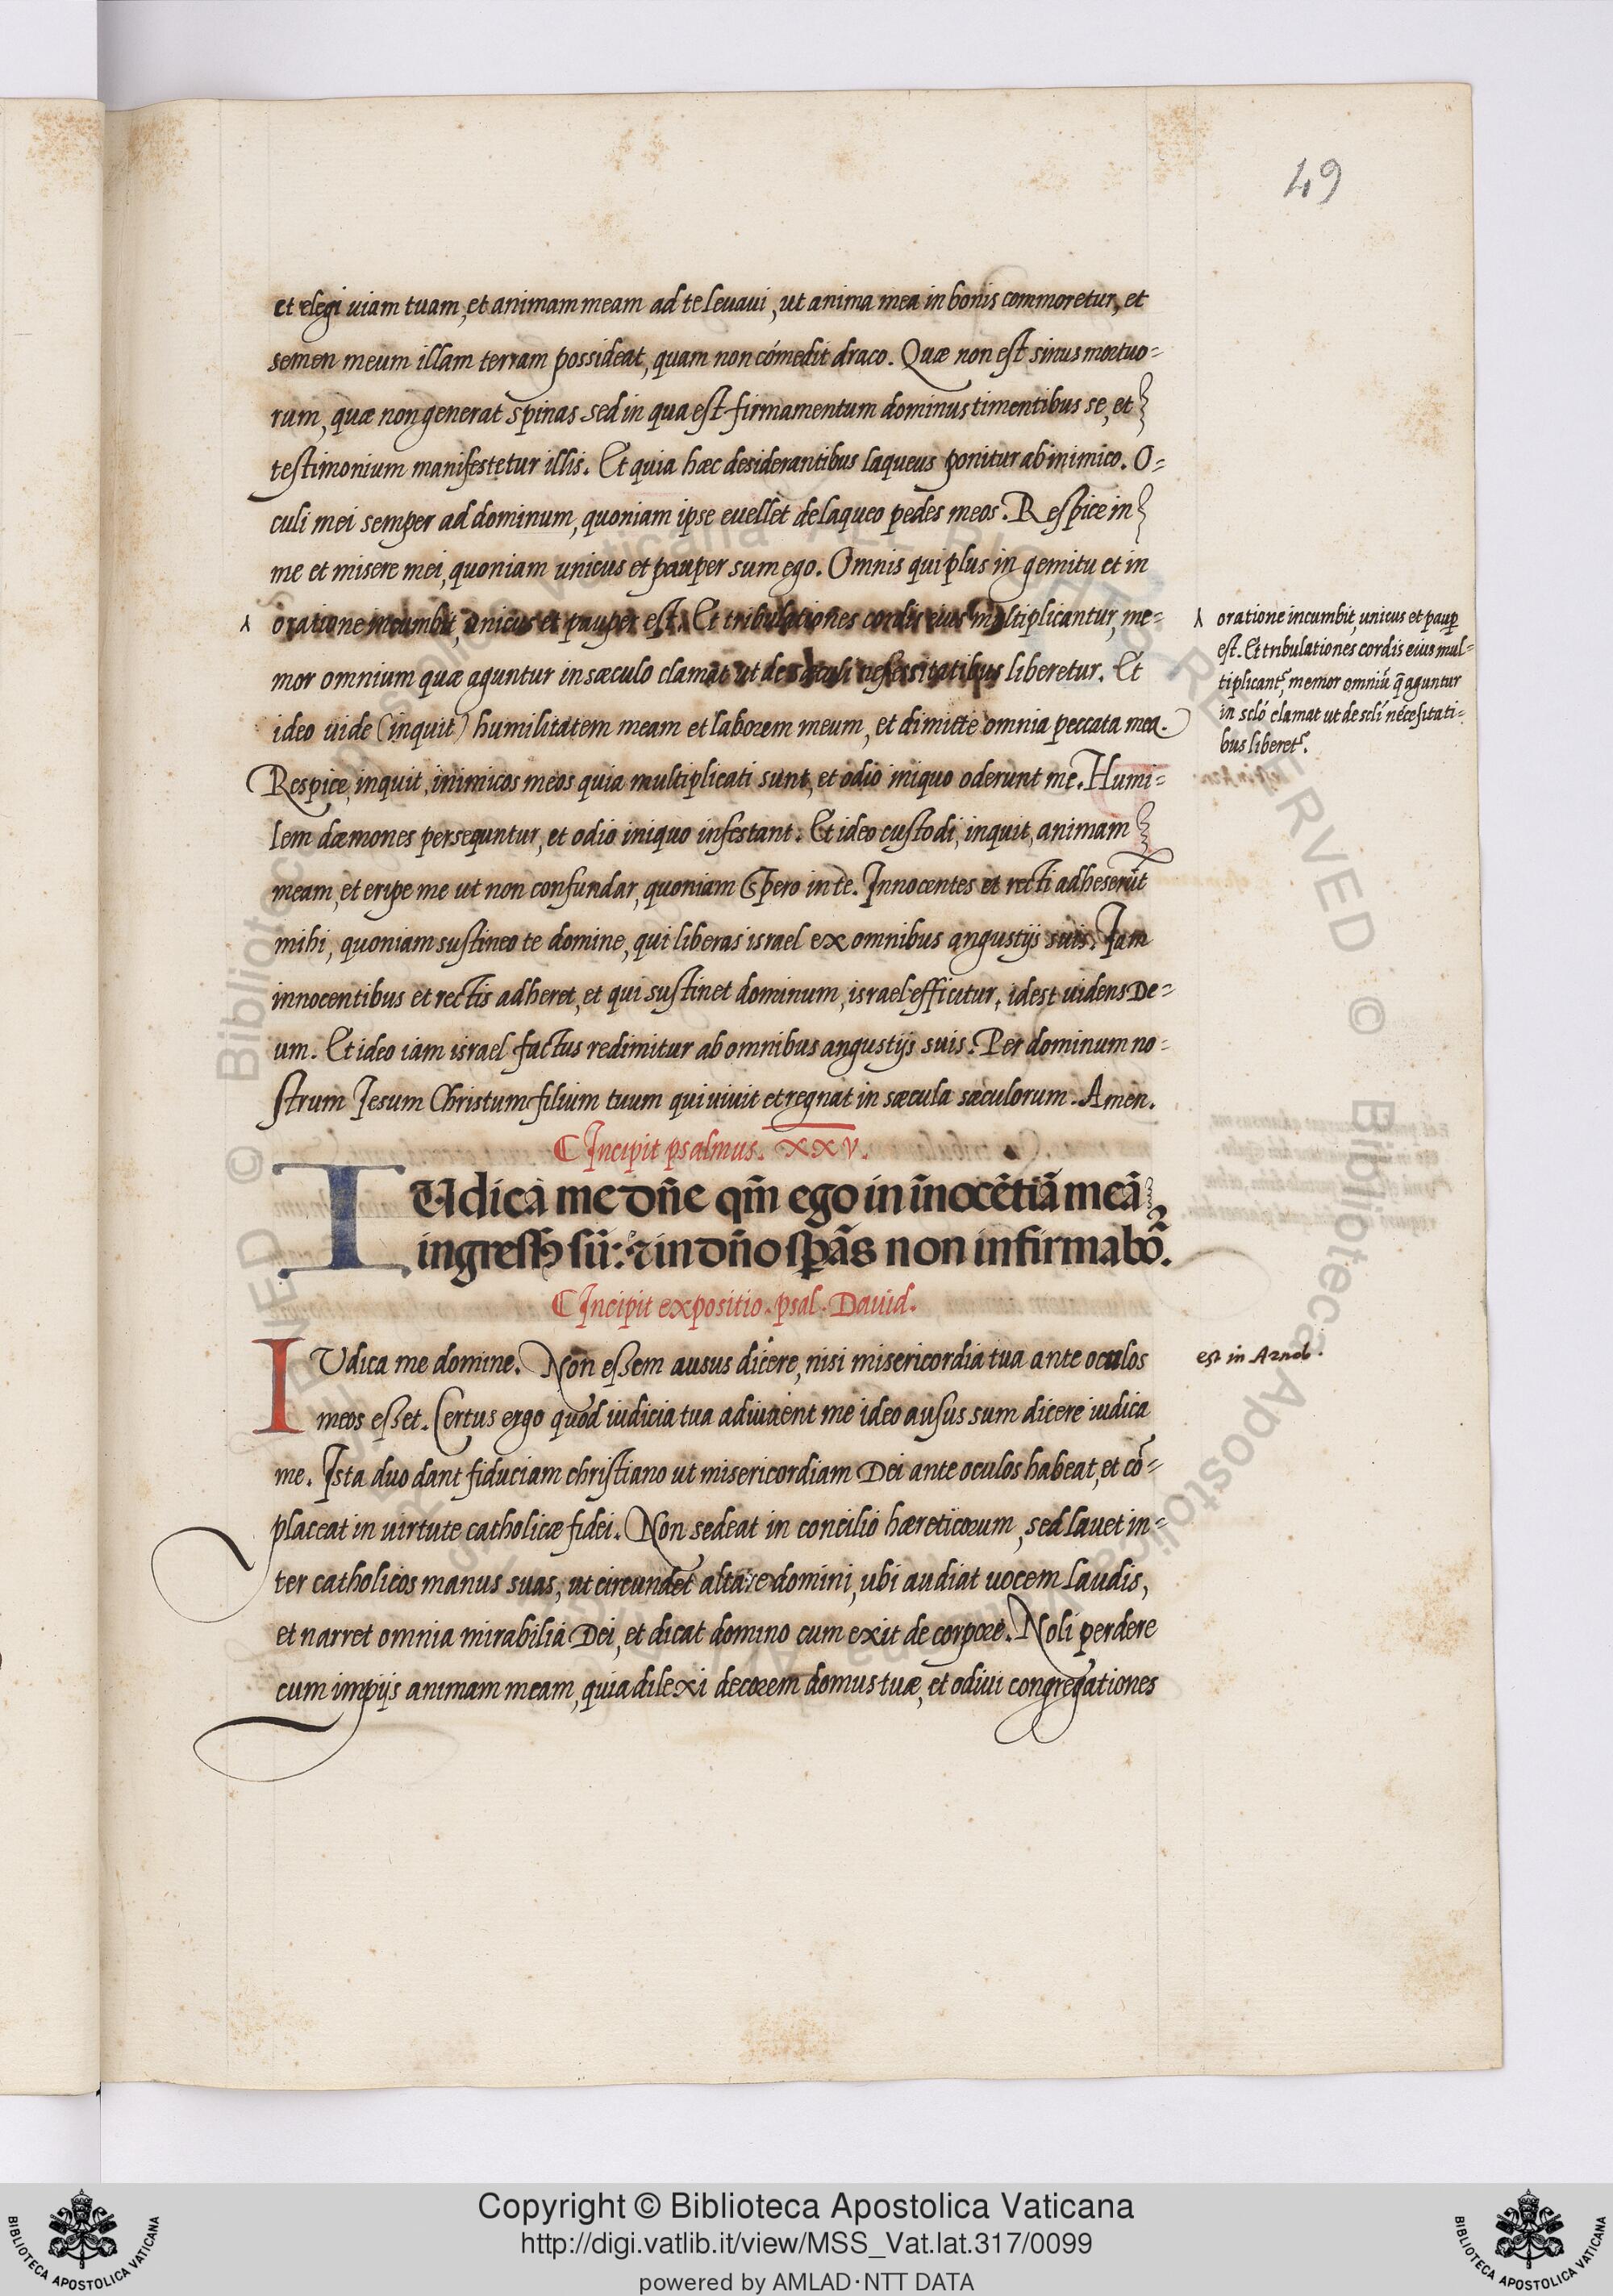 49
et elegi uiam tuam, et animam meam ad te leuaui, ut anima mea in bonis commoretur, et
semen meum illam terram possideat, quam non cómedit draco. Quæ non est sinus mortuo=
rum, quæ non generat spinas sed in qua est firmamentum dominus timentibus se, et
testimonium manifestetur illis. Et quia hæc desiderantibus laqueus ponitur ab inimico. O=
culi mei semper ad dominum, quoniam ipse euellet de laqueo pedes meos. Respice in
me et misere mei, quoniam unicus et pauper sum ego. Omnis qui plus in gemitu et in
oratione incumbit, unicus et pauper est. Et tribulationes cordis eius multiplicantur, me=
mor omnium quæ aguntur in sæculo clamat ut de sæculi necessitatibus liberetur. Et
ideo uide (inquit) humilitatem meam et laborem meum, et dimitte omnia peccata mea.
Respice, inquit, inimicos meos quia multiplicati sunt, et odio iniquo oderunt me. Humi=
lem dæmones persequntur, et odio iniquo infestant. Et ideo custodi, inquit, animam
meam, et eripe me ut non confundar, quoniam spero in te. Innocentes et recti adheserūt
mihi, quoniam sustineo te domine, qui liberas israel ex omnibus angustijs suis. Iam
innocentibus et rectis adheret, et qui sustinet dominum, israel efficitur, idest uidens De=
um. Et ideo iam israel factus redimitur ab omnibus angustijs suis. Per dominum no=
strum Iesum Christum filium tuum qui uiuit et regnat in sæcula sæculorum. Amen.
oratione incumbit, unicus et paup
est. Et tribulationes cordis eius mul=
tiplicant, memor omniū q̄ aguntur
in sclō clamat ut de sclī necessitati=
bus liberet.
Incipit psalmus. XXV.
IUdica me dn̄e qm̄ ego in īnocētiā meā
ingressus sū: et in dn̄o sperās non infirmabo.
Incipit expositio. psal. David.
IUdica me domine. Non essem ausus dicere, nisi misericordia tua ante oculos
meos esset. Certus ergo quod iudicia tua adiuuent me ideo ausus sum dicere iudica
me. Ista duo dant fiduciam christiano ut misericordiam Dei ante oculos habeat, et cō=
placeat in uirtute catholicæ fidei. Non sedeat in concilio hæreticorum, sed lauet in=
ter catholicos manus suas, ut circundet altare domini, ubi audiat uocem laudis,
et narret omnia mirabilia Dei, et dicat domino cum exit de corpore. Noli perdere
cum impijs animam meam, quia dilexi decorem domus tuæ, et odiui congregationes
est in Arnob.
Copyright © Biblioteca Apostolica Vaticana
http://digi.vatlib.it/view/MSS_Vat.lat.317/0099
powered by AMLAD·NTT DATA
BIBLIOTECA APOSTOLICA VATICANA
BIBLIOTECA APOSTOLICA VATICANA